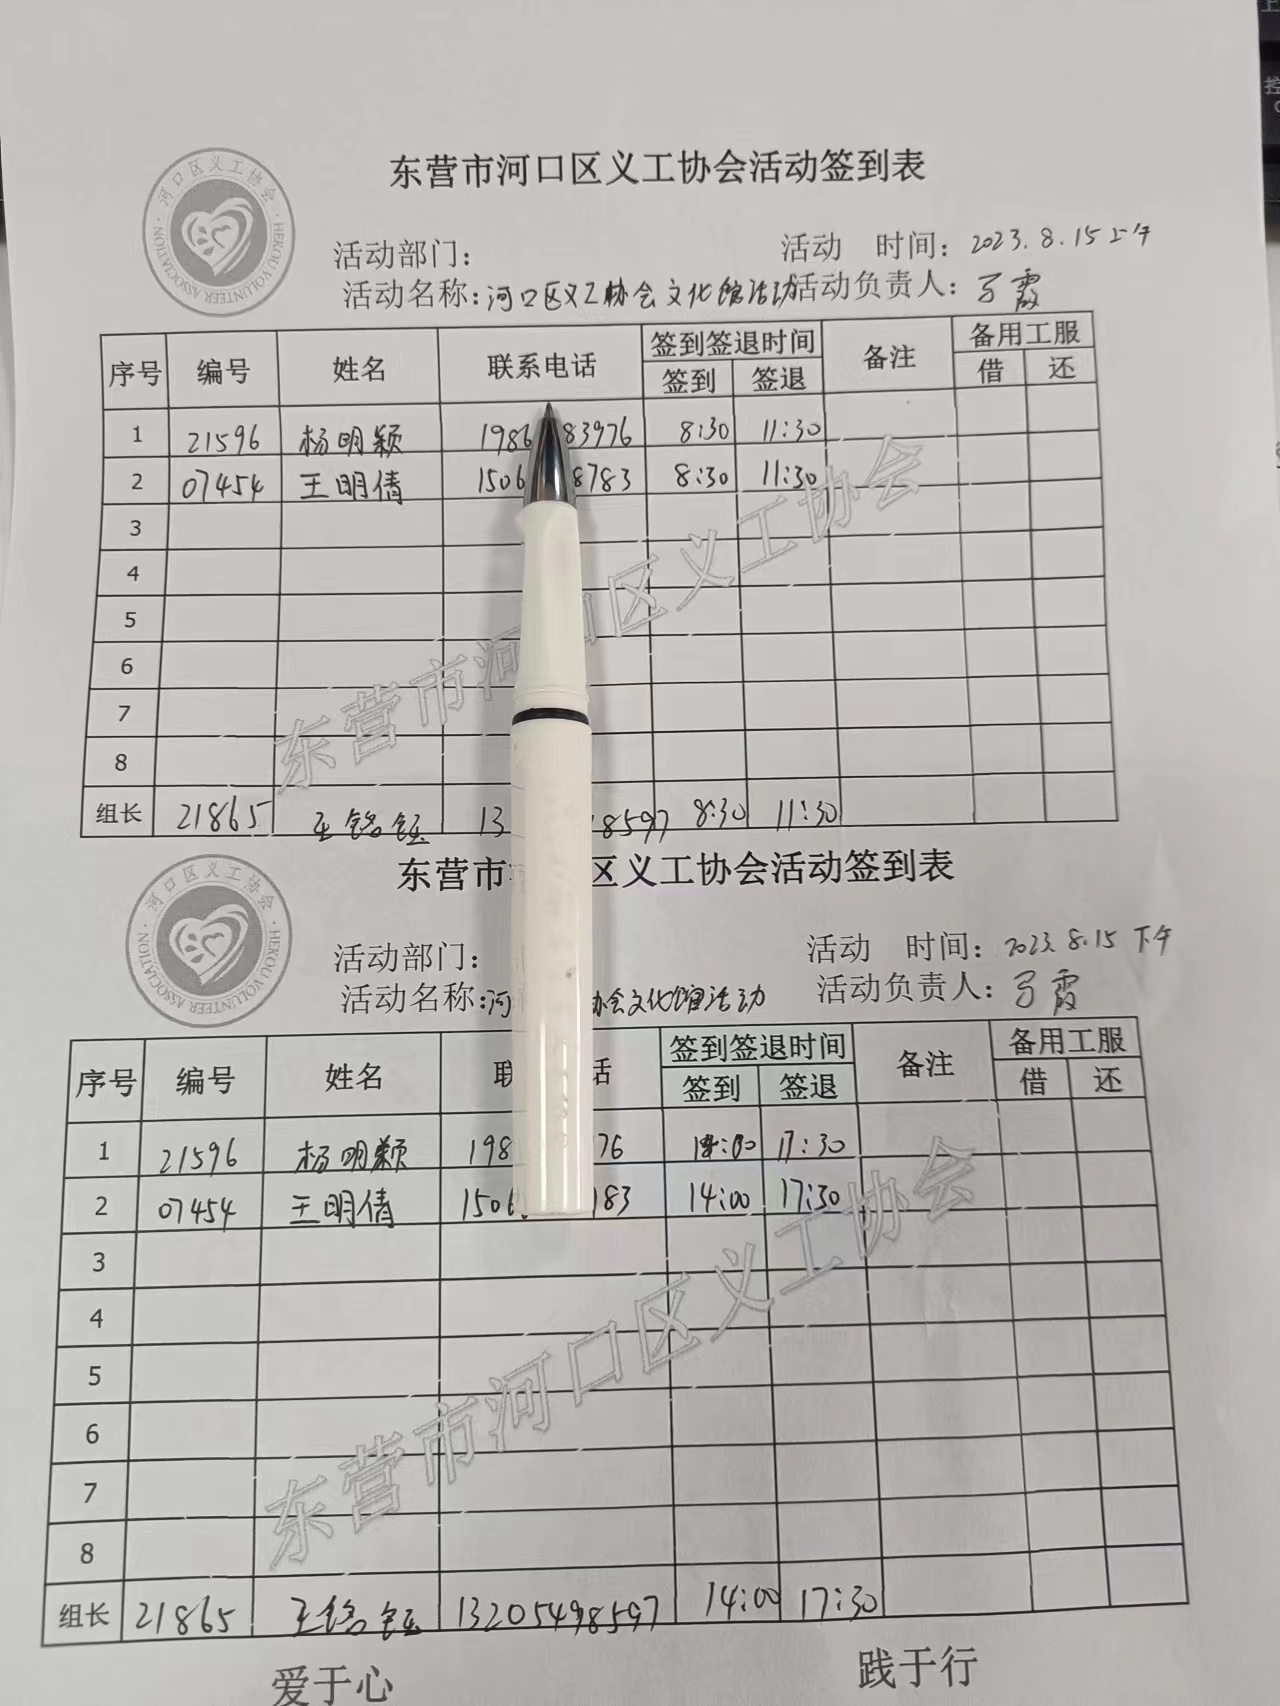 东营市河口区义工协会活动签到表
河口区义工协会
HEKOU VOLUNTEER ASSOCIATION
活动部门：
活动 时间：2023.8.15上午
活动名称：河口区义工协会文化馆活动
活动负责人：万霞
序号 编号 姓名 联系电话 签到签退时间 备注 备用工服
签到 签退 借 还
1 21596 杨明颖 1986 83976 8:30 11:30
2 07454 王明倩 1506 8783 8:30 11:30
3
4
5
6
7
8
组长 21865 王铭钰 13 18597 8:30 11:30
东营市河口区义工协会
东营市 区义工协会活动签到表
河口区义工协会
HEKOU VOLUNTEER ASSOCIATION
活动部门：
活动 时间：2023.8.15下午
活动名称：河 协会文化馆活动
活动负责人：万霞
序号 编号 姓名 联 话 签到签退时间 备注 备用工服
签到 签退 借 还
1 21596 杨明颖 198 76 14:00 17:30
2 07454 王明倩 1506 183 14:00 17:30
3
4
5
6
7
8
组长 21865 王铭钰 13205498597 14:00 17:30
东营市河口区义工协会
爱于心 践于行